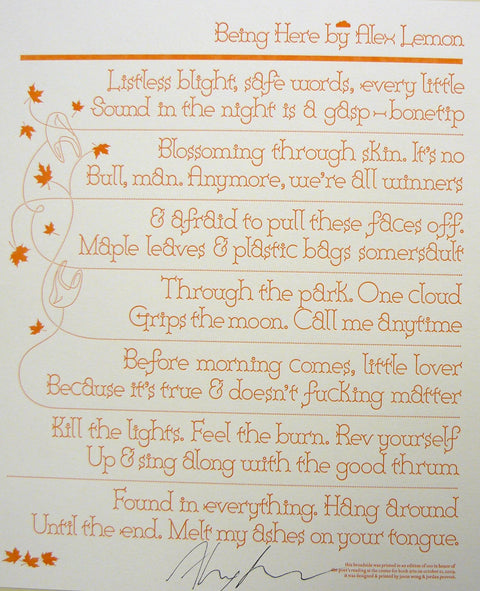 Being Here by Alex Lemon
Listless blight, safe words, every little
Sound in the night is a gasp—bonetip
Blossoming through skin. It's no
Bull, man. Anymore, we're all winners
& afraid to pull these faces off.
Maple leaves & plastic bags somersault
Through the park. One cloud
Grips the moon. Call me anytime
Before morning comes, little lover
Because it's true & doesn't fucking matter
Kill the lights. Feel the burn. Rev yourself
Up & sing along with the good thrum
Found in everything. Hang around
Until the end. Melt my ashes on your tongue.
this broadside was printed in an edition of 100 in honor of
the poet's reading at the center for book arts on october 21, 2009.
it was designed & printed by jason wong & jordan provost.